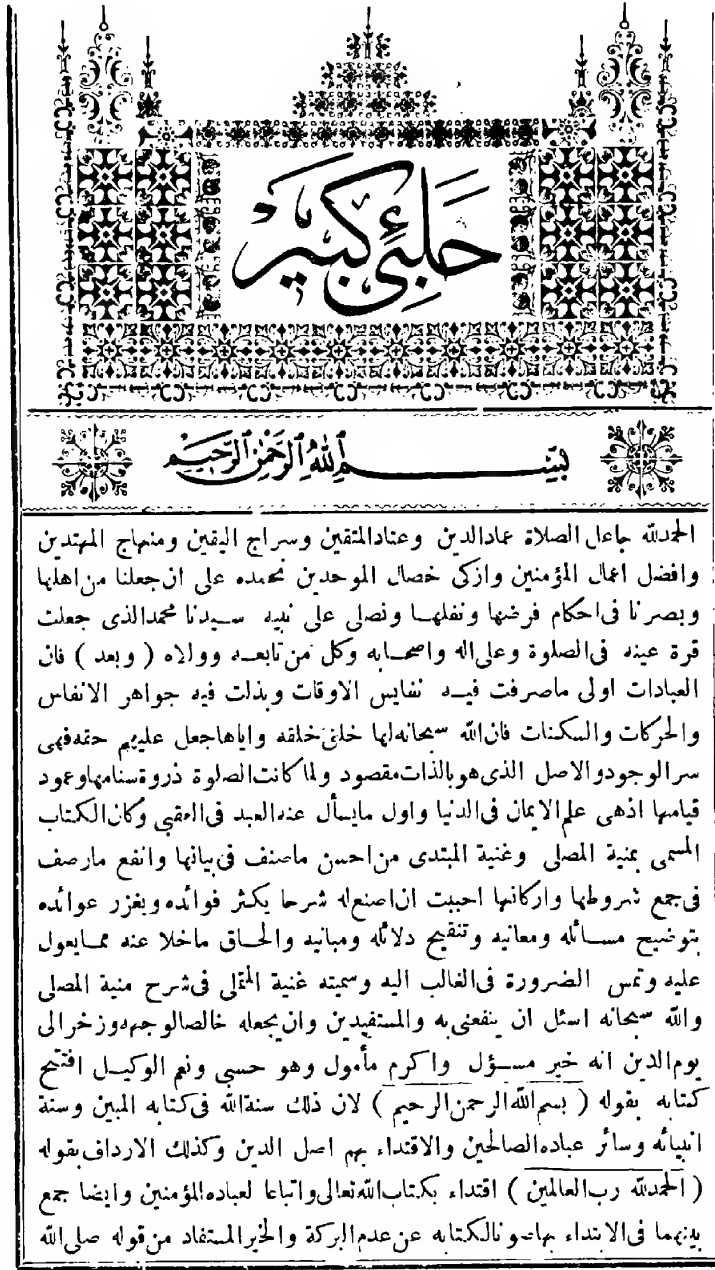 حلبئ كبير
بِسْمِ اللهِ الرَّحْمٰنِ الرَّحِيمِ
الحمدلله جاعل الصلاة عمادالدين وعتادالمتقين وسراج اليقين ومنهاج المهتدين
وافضل اعمال المؤمنين وازكى خصال الموحدين نحمده على ان جعلنا من اهلها
وبصرنا فى احكام فرضها ونفلها ونصلى على نبيه سيدنا محمدالذى جعلت
قرة عينه فى الصلوة وعلى اله واصحابه وكل من تابعه ووولاه ( وبعد ) فان
العبادات اولى ماصرفت فيه نفايس الاوقات وبذلت فيه جواهر الانفاس
والحركات والسكنات فان الله سبحانه لها خلق خلقه واياها جعل عليهم حقه فهى
سر الوجود والاصل الذى هو بالذات مقصود ولما كانت الصلوة ذروة سنامها وعمود
قيامها اذهى علم الايمان فى الدنيا واول مايسأل عنه العبد فى العقبى وكان الكتاب
المسمى بمنية المصلى وغنية المبتدى من احسن ماصنف فى بيانها وانفع مارصف
فى جمع شروطها واركانها احببت ان اصنع له شرحا يكثر فوائده ويغزر عوائده
بتوضيح مسائله ومعانيه وتنقيح دلائله ومبانيه والحاق ماخلا عنه ممايعول
عليه وتمس الضرورة فى الغالب اليه وسميته غنية المتملى فى شرح منية المصلى
والله سبحانه اسئل ان ينفعنى به والمستفيدين وان يجعله خالصا لوجهه وزخرا لى
يوم الدين انه خير مسؤل واكرم مأمول وهو حسبى ونعم الوكيل افتتح
كتابه بقوله ( بسم الله الرحمن الرحيم ) لان ذلك سنة الله فى كتابه المبين وسنة
انبيائه وسائر عباده الصالحين والاقتداء بهم اصل الدين وكذلك الارداف بقوله
( الحمدلله رب العالمين ) اقتداء بكتاب الله تعالى واتباعا لعباده المؤمنين وايضا جمع
بينهما فى الابتداء بها صونا لكتابه عن عدم البركة والخير المستفاد من قوله صلى الله